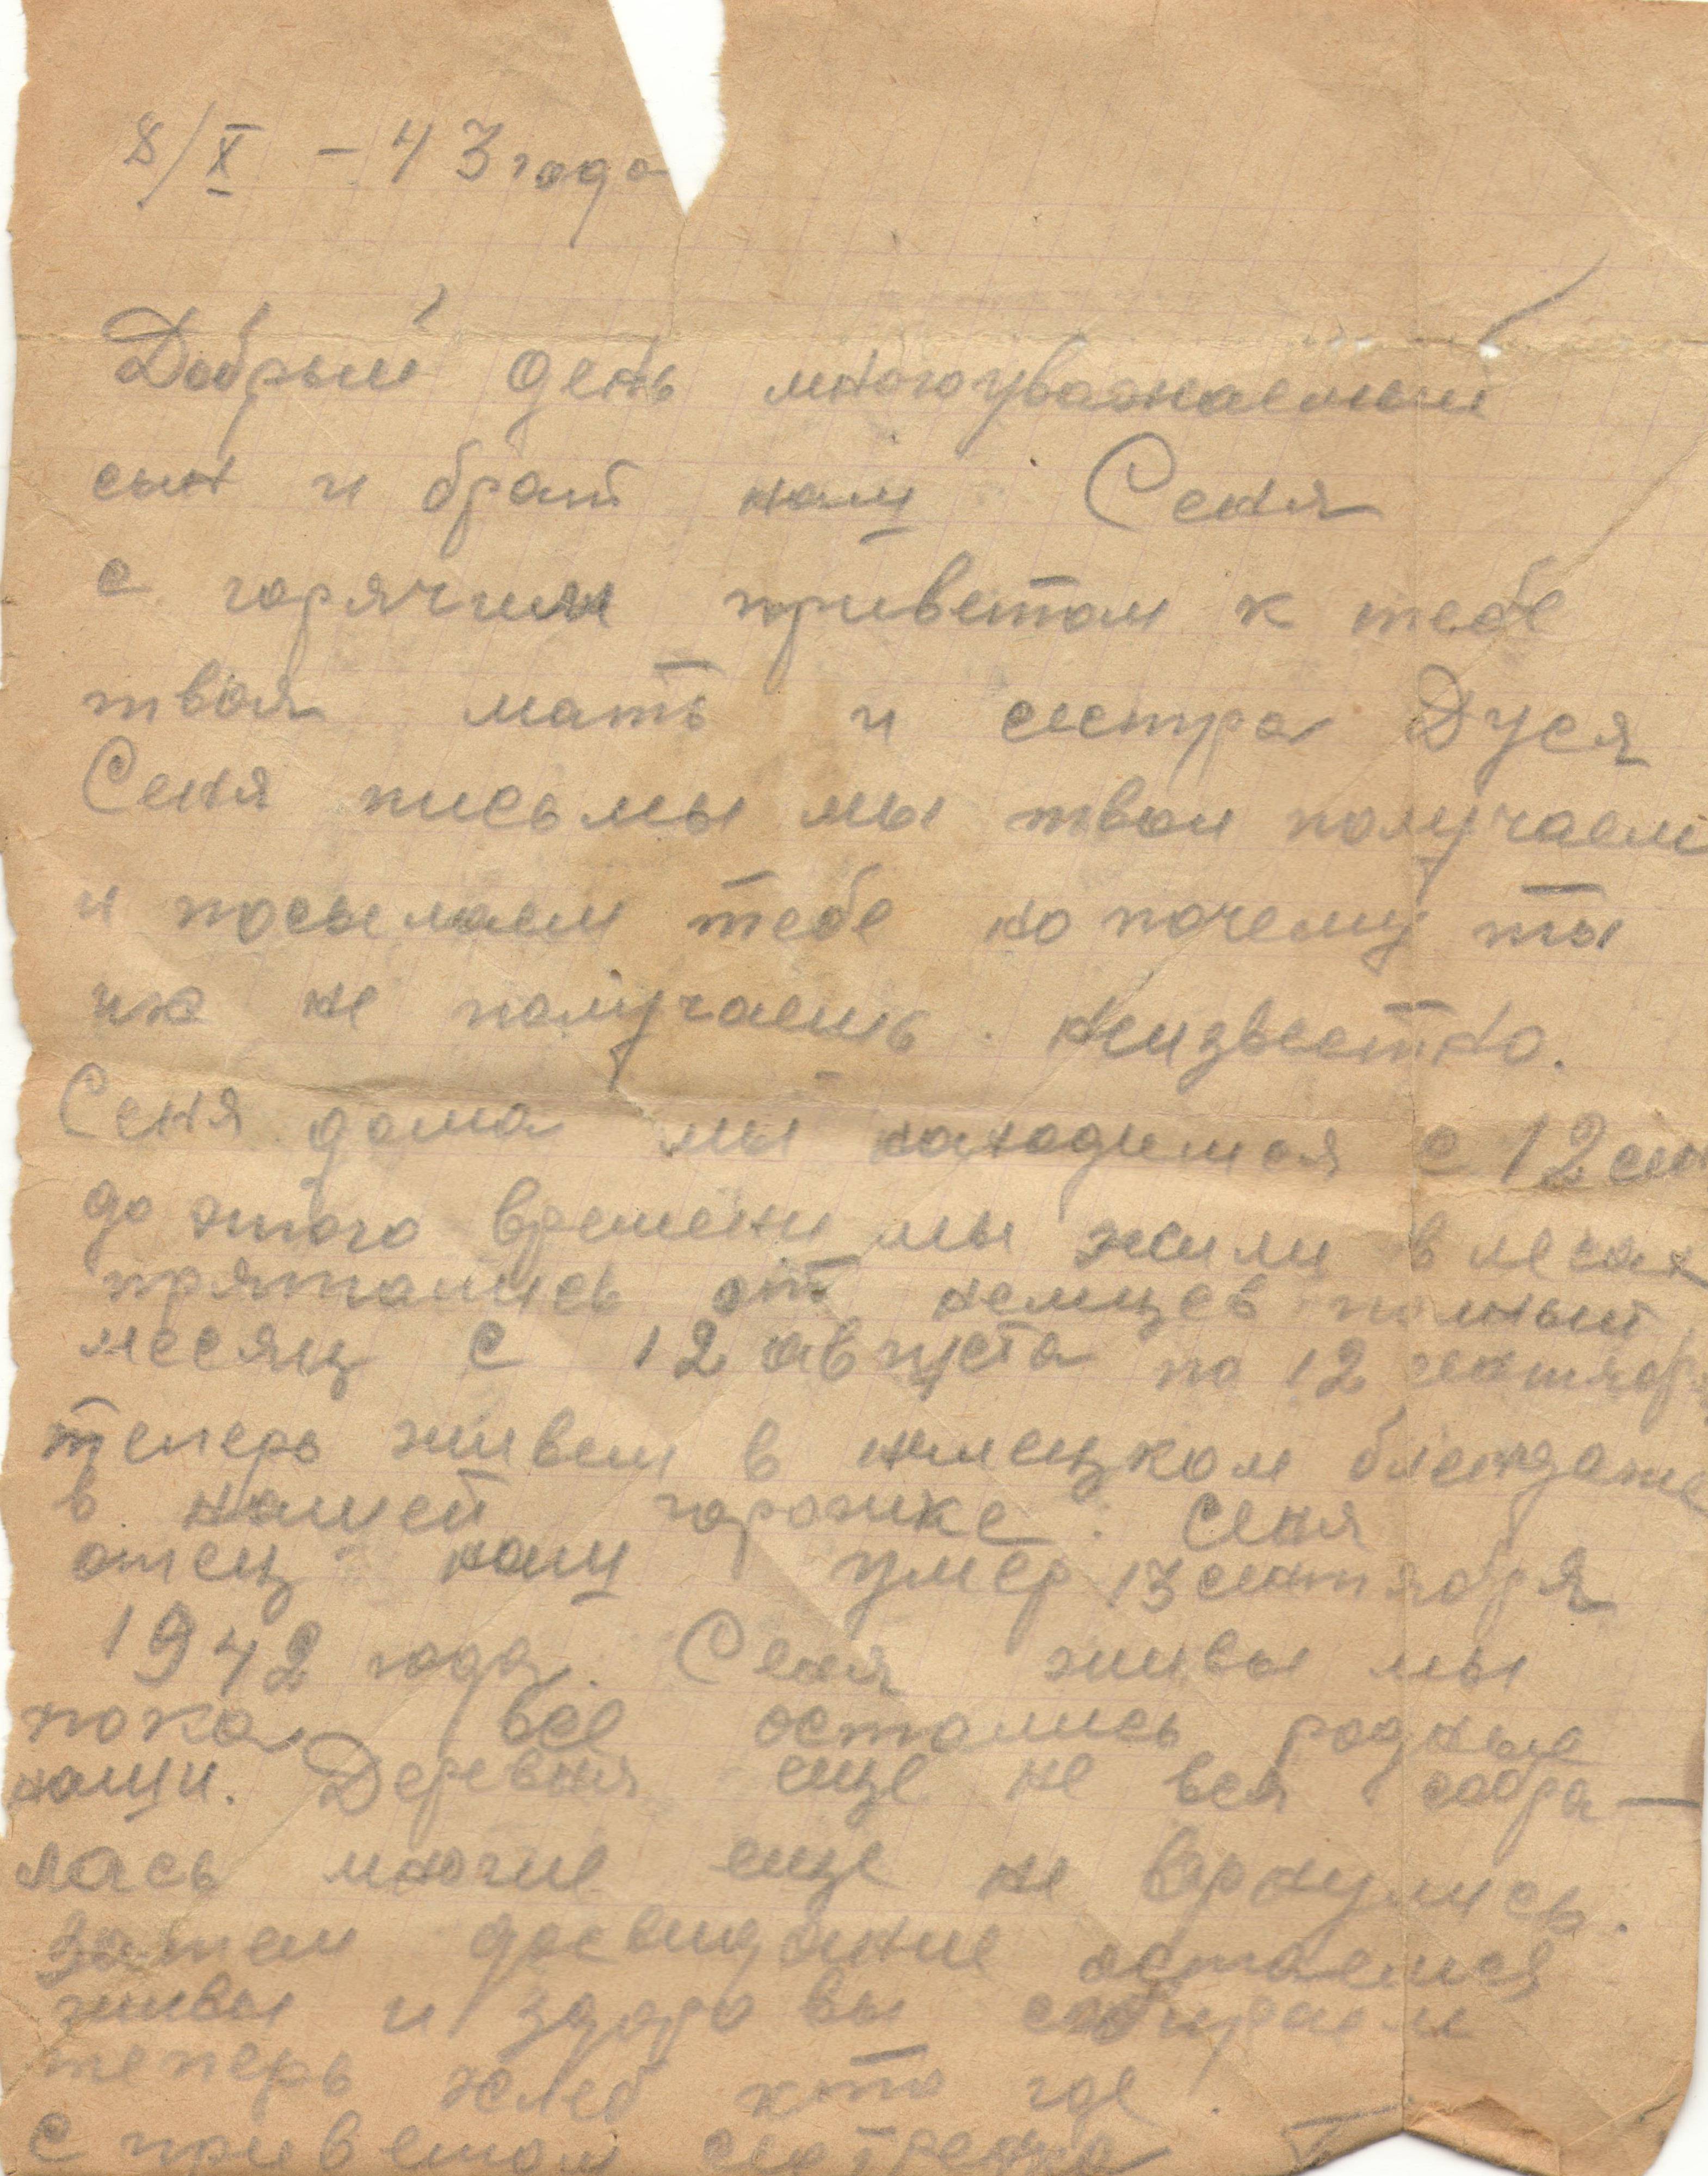 8/X – 43 года
Добрый день многоуважаемый
сын и брат наш Сеня
с горячим приветом к тебе
твоя мать и сестра Дуся
Сеня письмы мы твои получаем
и посылаем тебе но почему ты
их не получаешь неизвестно.
Сеня дома мы находимся с 12 сен
до этого времени мы жили в лесах
прятались от немцев полный
месяц с 12 августа по 12 сентября
теперь живем в немецком блендаже
в нашей горожке. Сеня
отец наш умер 13 сентября
1942 года. Сеня живы мы
пока все остались родные
наши. Деревня еще не вся собра–
лась многие еще не вернулись.
Затем досвидание остаемся
живы и здоровы собираем
теперь хлеб кто где.
С приветом сестренка